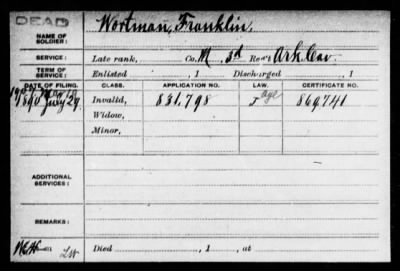 DEAD
NAME OF SOLDIER: Wortman, Franklin.
SERVICE: Late rank, Co. M, 3d Reg't Ark. Cav.
TERM OF SERVICE: Enlisted , 1 Discharged , 1
DATE OF FILING. CLASS. APPLICATION NO. LAW. CERTIFICATE NO.
1890 July 29. Invalid, 831.798 J age 869741
Widow,
Minor,
ADDITIONAL SERVICES:
REMARKS:
Died , 1 , at